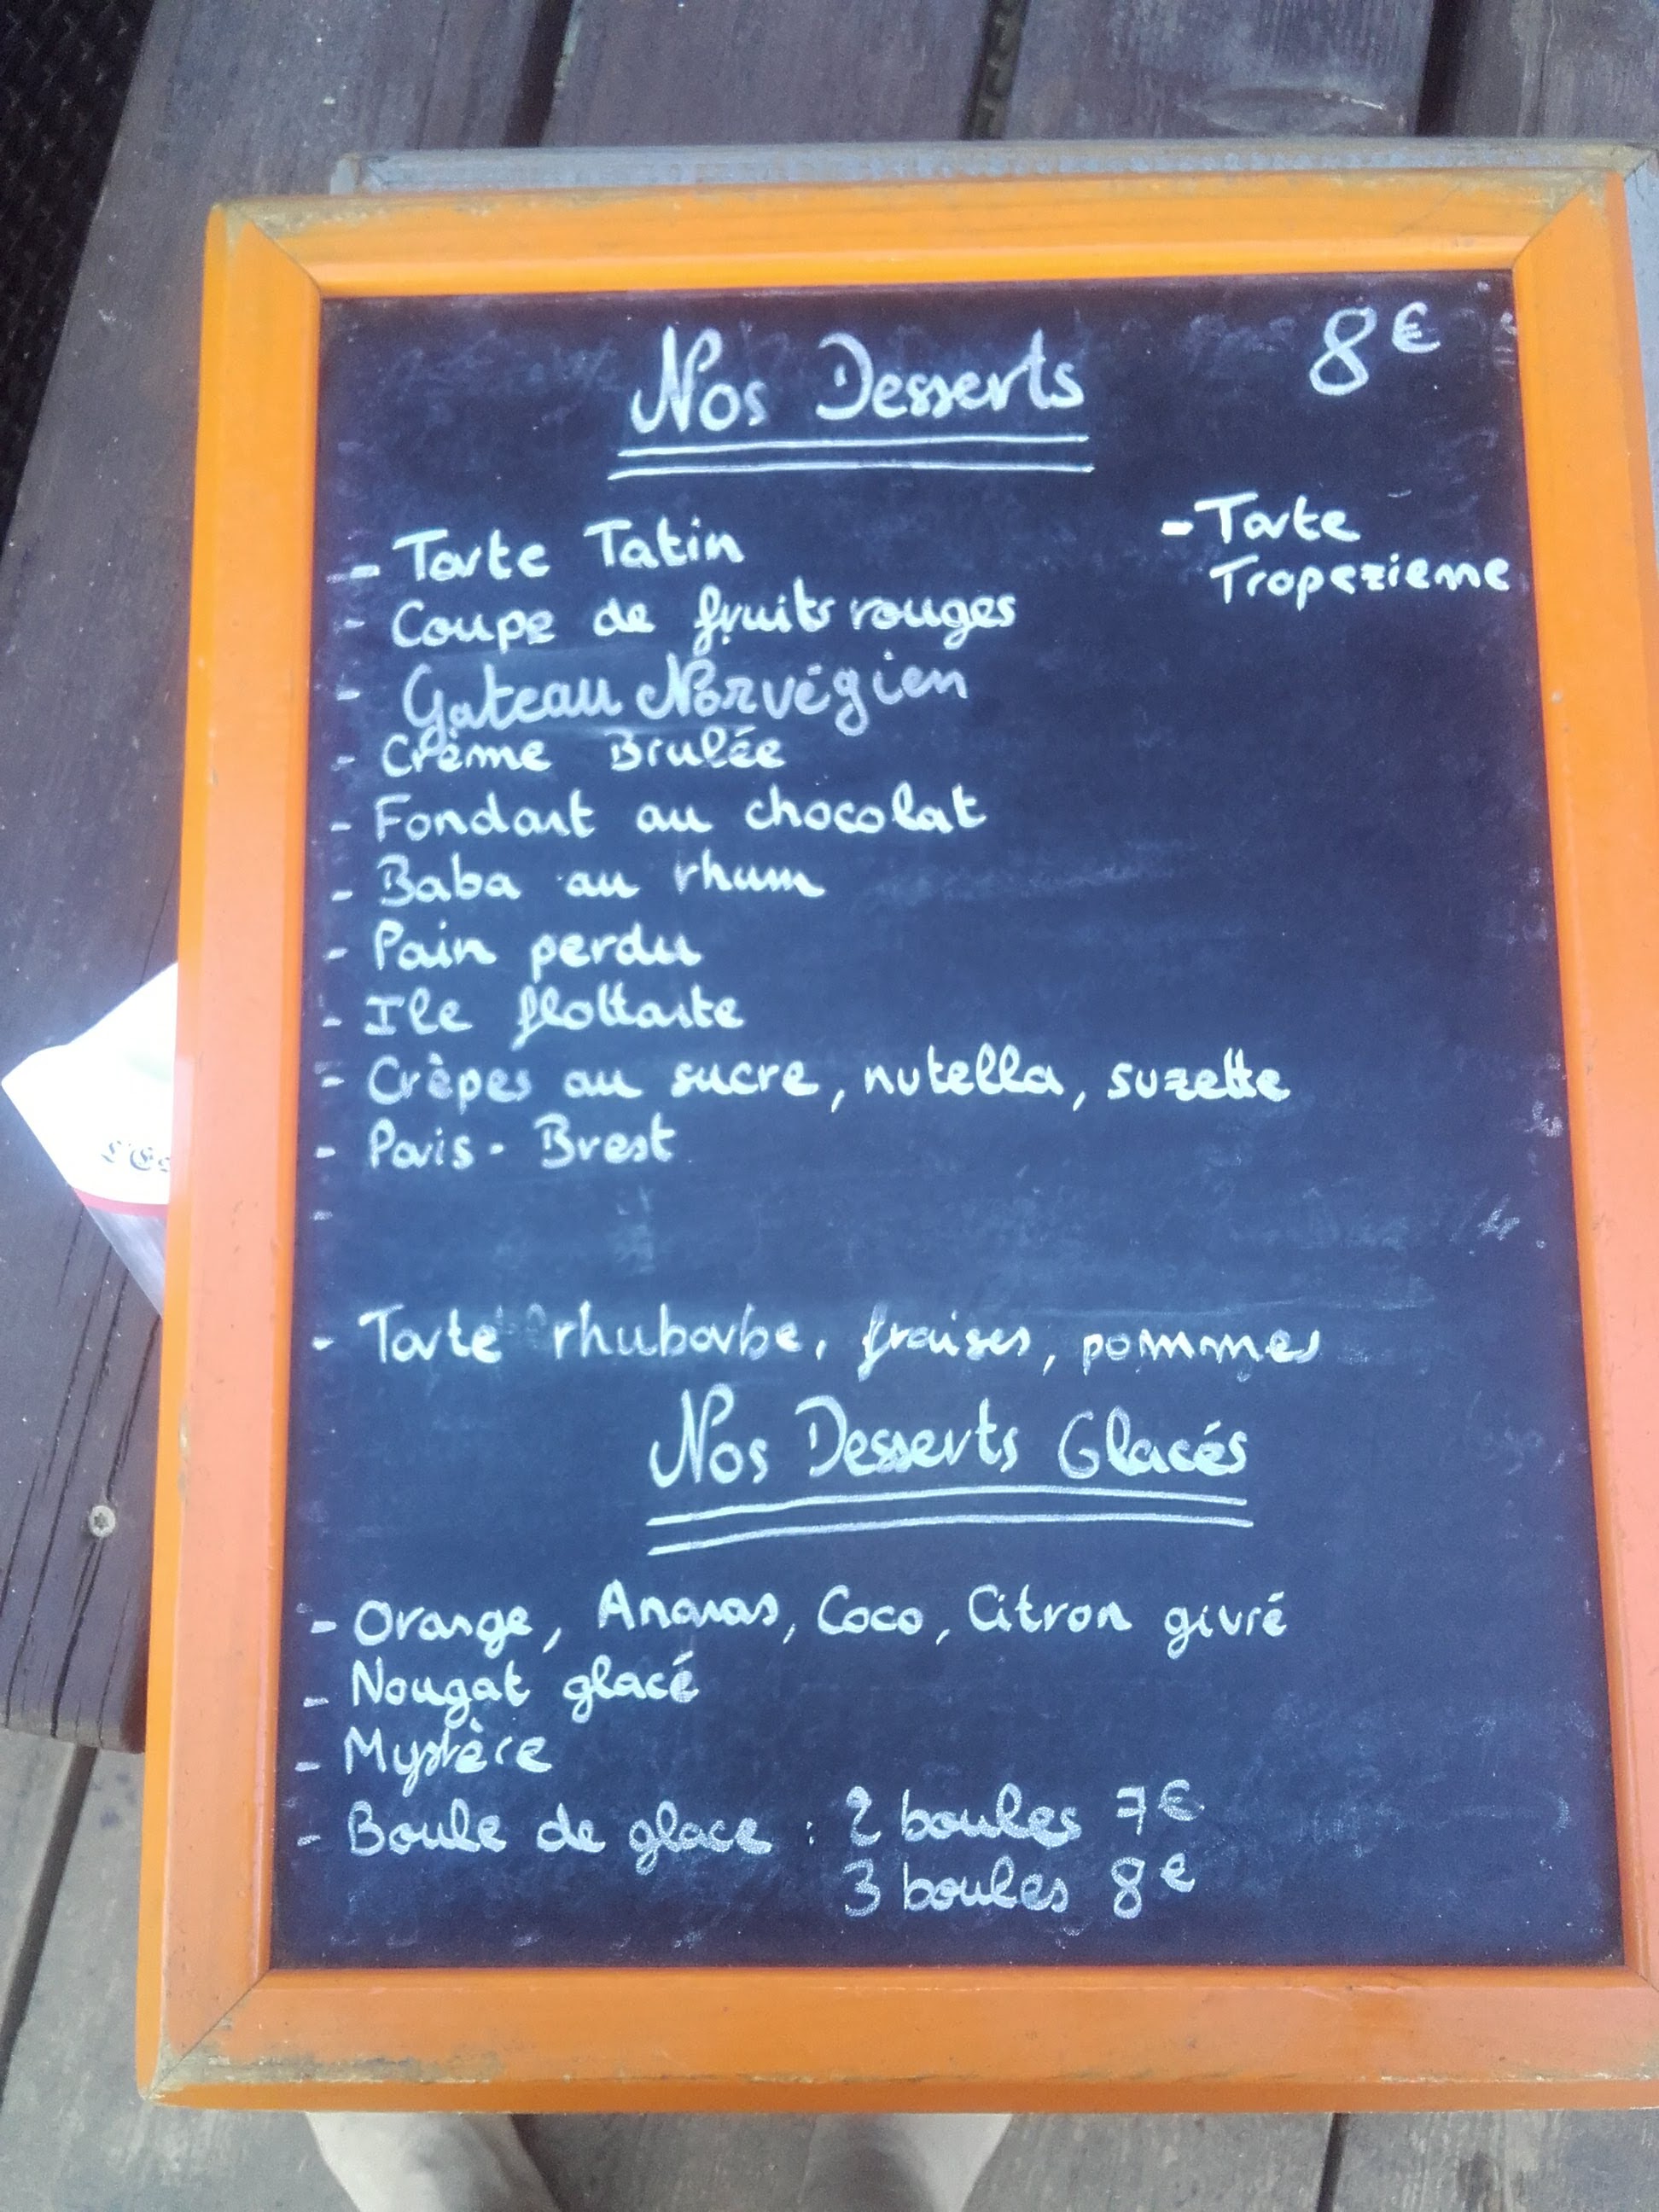 Nos Desserts
8€
- Tarte Tatin
- Coupe de fruits rouges
- Gateau Norvégien
- Crème Brulée
- Fondant au chocolat
- Baba au rhum
- Pain perdu
- Ile flottante
- Crèpes au sucre, nutella, suzette
- Paris - Brest
-
- Tarte rhubarbe, fraises, pommes
- Tarte
Tropezienne
Nos Desserts Glacés
- Orange, Ananas, Coco, Citron givré
- Nougat glacé
- Mystère
- Boule de glace : 2 boules 7€
3 boules 8€